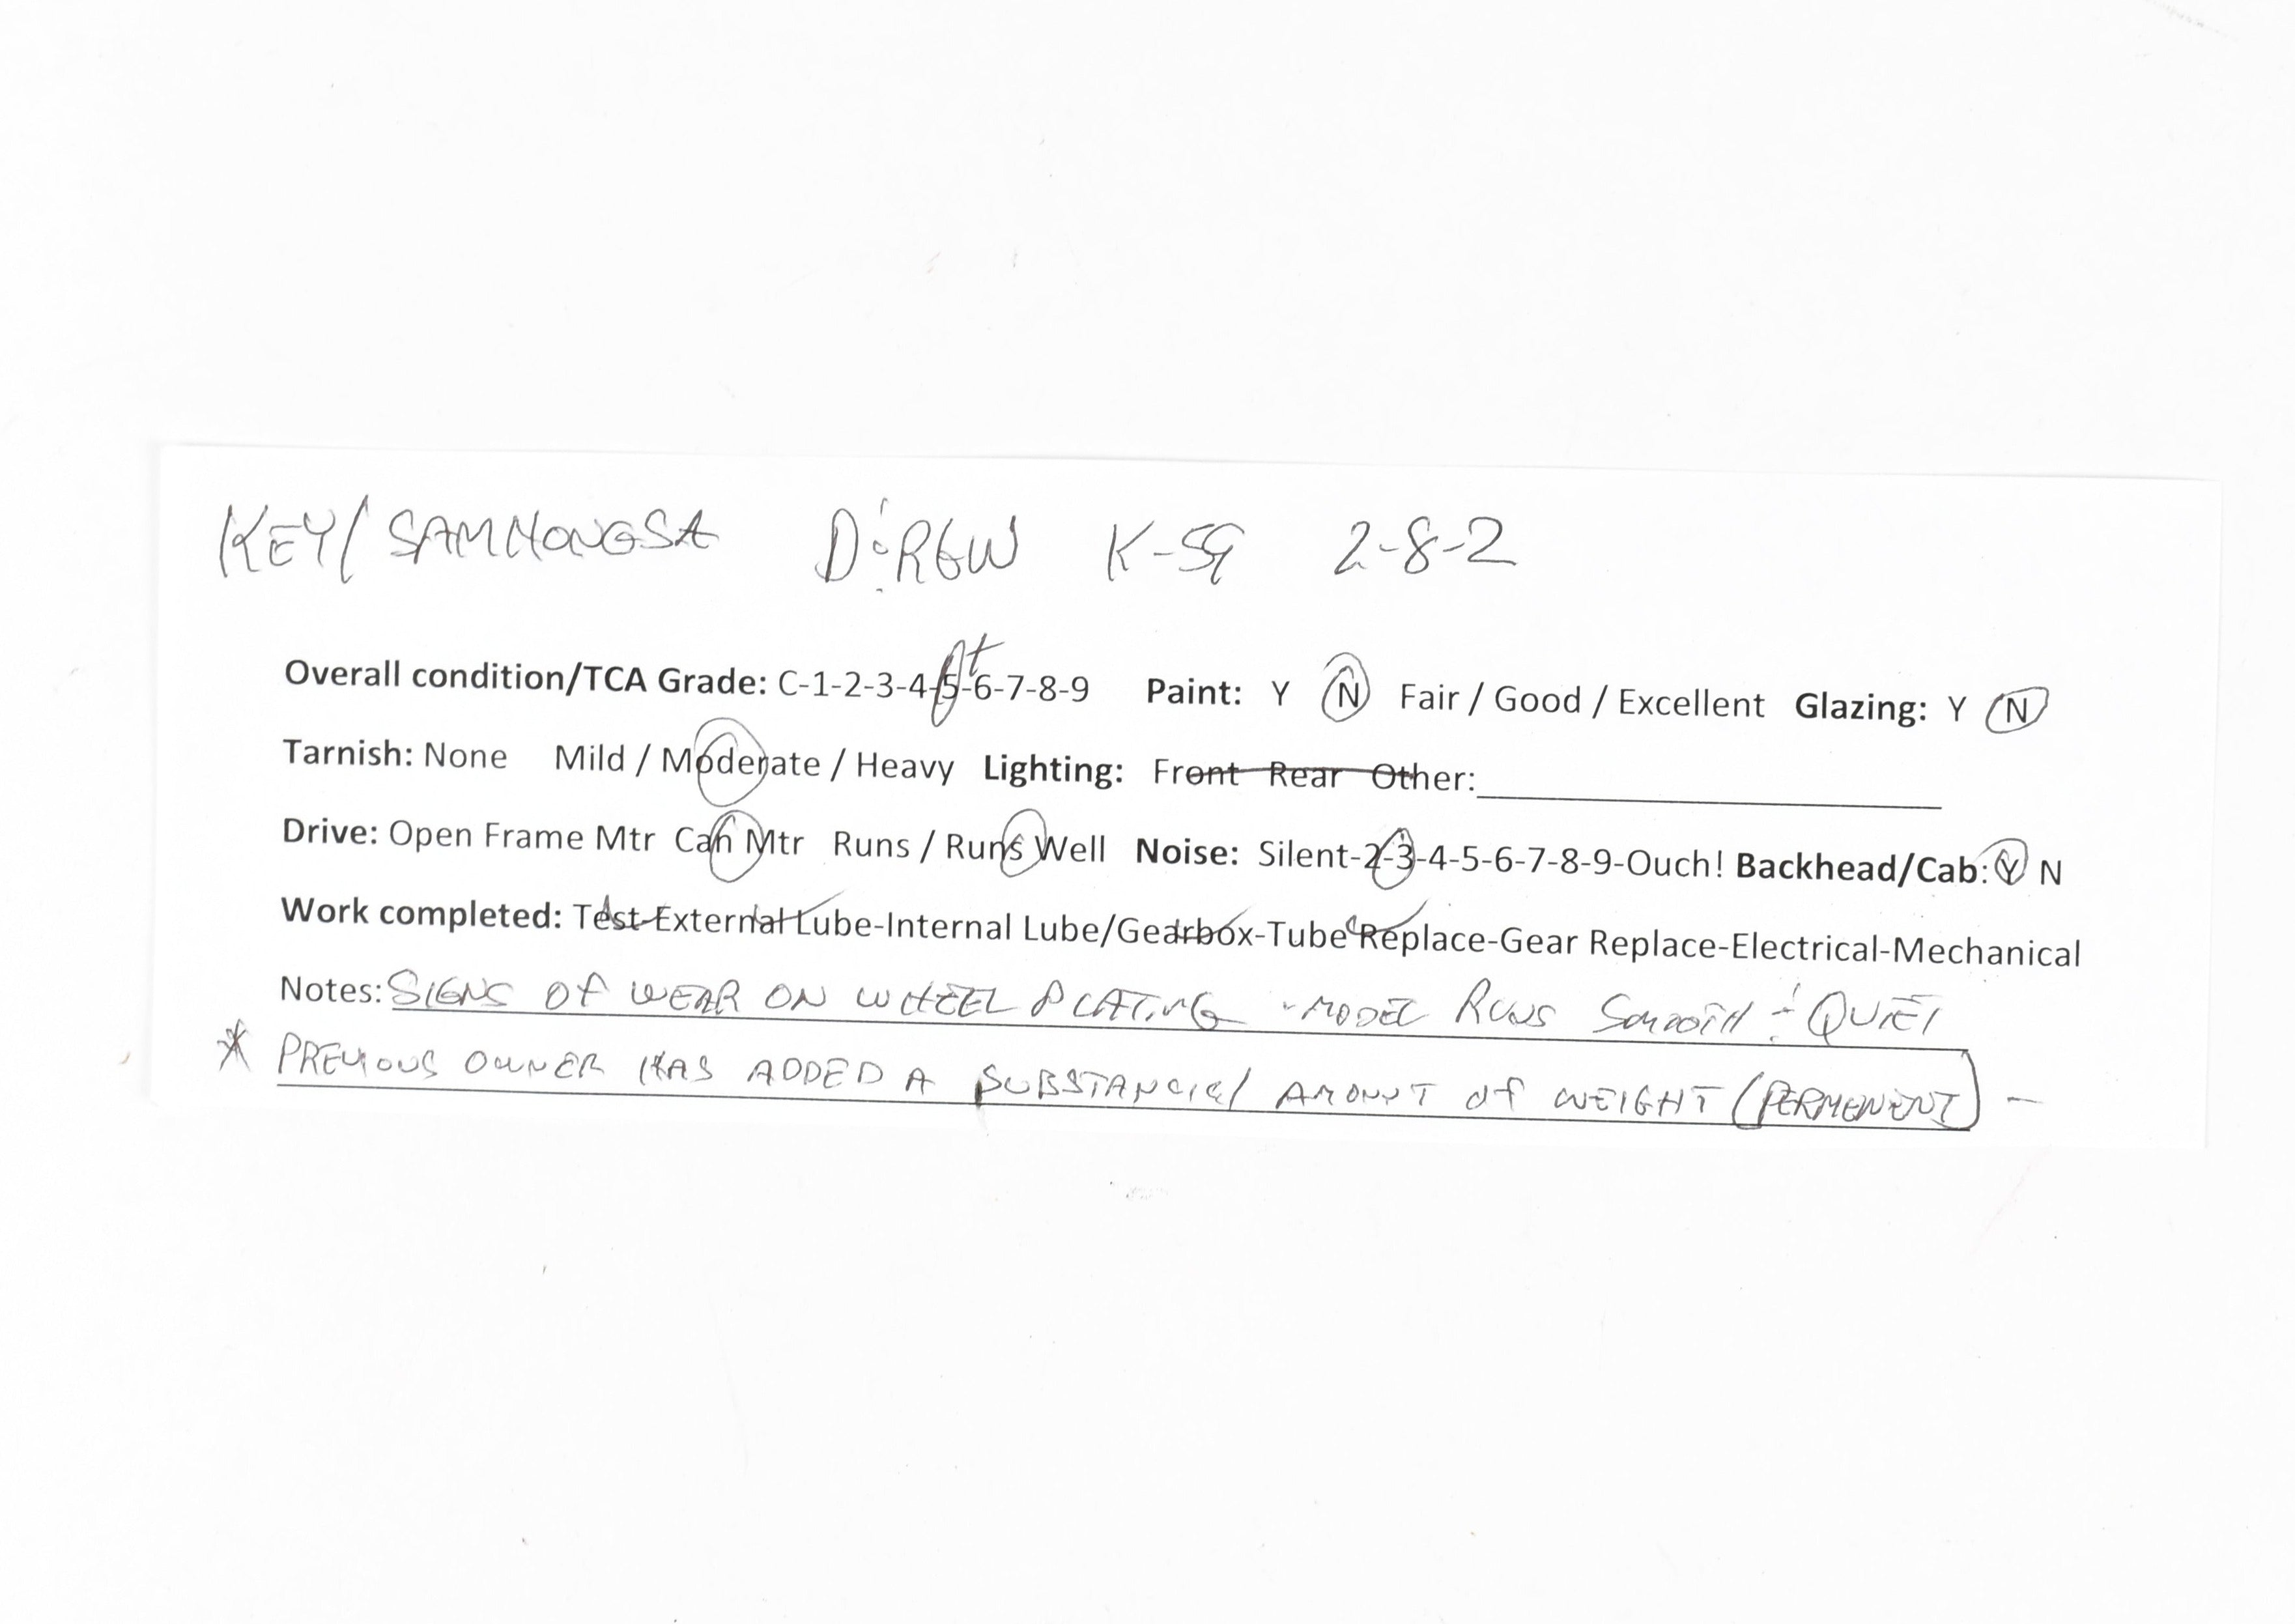 KEY/SAMHONGSA D&RGW K-59 2-8-2
Overall condition/TCA Grade: C-1-2-3-4-5-6-7-8-9 Paint: Y N Fair / Good / Excellent Glazing: Y N
Tarnish: None Mild / Moderate / Heavy Lighting: Front Rear Other:
Drive: Open Frame Mtr Can Mtr Runs / Runs Well Noise: Silent-2-3-4-5-6-7-8-9-Ouch! Backhead/Cab: Y N
Work completed: Test-External Lube-Internal Lube/Gearbox-Tube Replace-Gear Replace-Electrical-Mechanical
Notes: SIGNS OF WEAR ON WHEEL PLATING - MODEL RUNS SMOOTH & QUIET
* PREVIOUS OWNER HAS ADDED A SUBSTANCIAL AMOUNT OF WEIGHT (PERMENENT) -